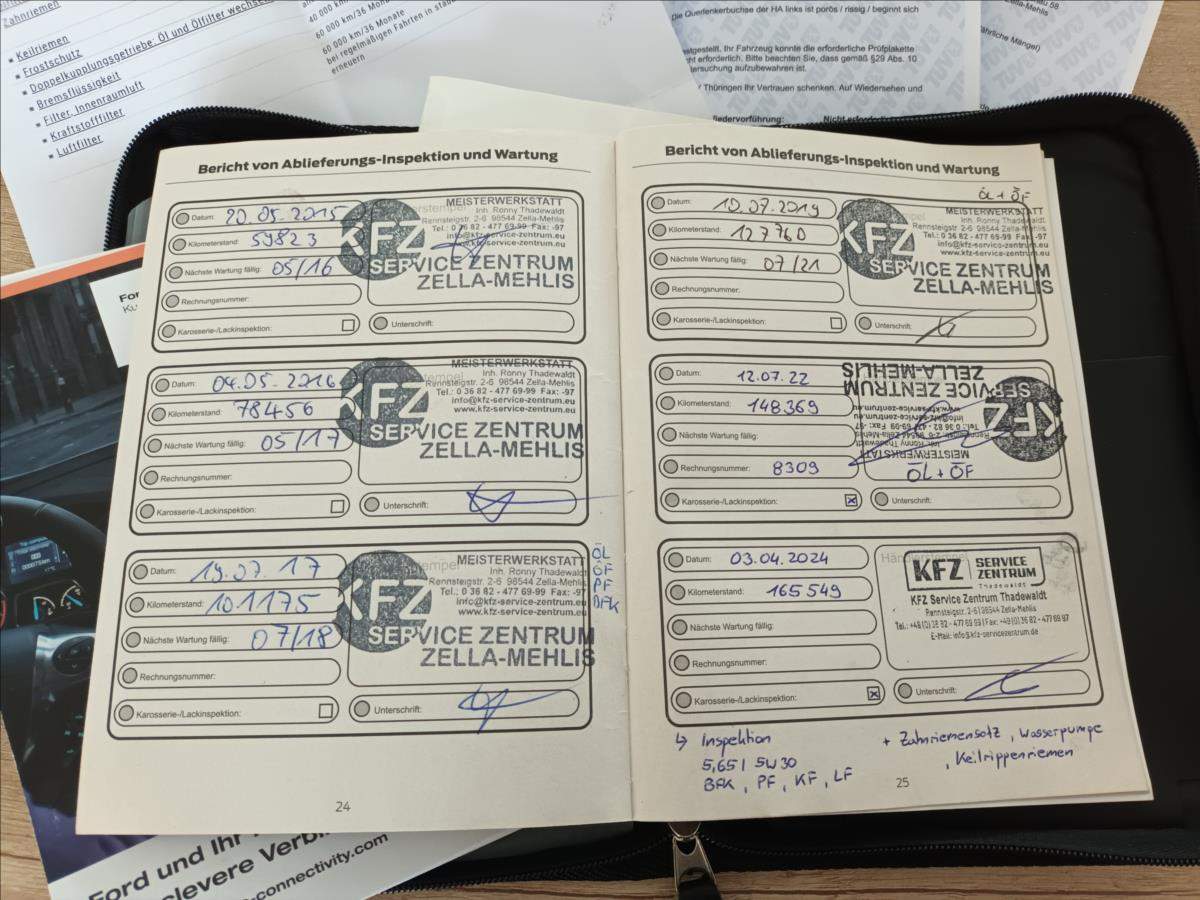 Zahnriemen
Keilriemen
Frostschutz
Doppelkupplungsgetriebe: Öl und Ölfilter wechseln
Bremsflüssigkeit
Filter, Innenraumluft
Kraftstofffilter
Luftfilter
40 000 km/
60 000 km/36 Monate
60 000 km/36 Monate
bei regelmäßigen Fahrten in
erneuern
Die Querlenkerbuchse der HA links ist porös / rissig / beginnt sich
estgestellt. Ihr Fahrzeug konnte die erforderliche Prüfplakette
ht erforderlich. Bitte beachten Sie, dass gemäß §29 Abs. 10
ersuchung aufzubewahren ist.
/ Thüringen Ihr Vertrauen schenken. Auf Wiedersehen und
iedervorführung:
Zella-Mehlis
ährliche Mängel)
Bericht von Ablieferungs-Inspektion und Wartung
Datum: 20.05.2015
Kilometerstand: 59823
Nächste Wartung fällig: 05/16
Rechnungsnummer:
Karosserie-/Lackinspektion:
Unterschrift:
MEISTERWERKSTATT
Inh. Ronny Thadewaldt
Rennsteigstr. 2-6 98544 Zella-Mehlis
Tel.: 0 36 82 - 477 69-99 Fax: -97
info@kfz-service-zentrum.eu
www.kfz-service-zentrum.eu
KFZ
SERVICE ZENTRUM
ZELLA-MEHLIS
Datum: 04.05.2016
Kilometerstand: 78456
Nächste Wartung fällig: 05/17
Rechnungsnummer:
Karosserie-/Lackinspektion:
Unterschrift:
MEISTERWERKSTATT
Inh. Ronny Thadewaldt
Rennsteigstr. 2-6 98544 Zella-Mehlis
Tel.: 0 36 82 - 477 69-99 Fax: -97
info@kfz-service-zentrum.eu
www.kfz-service-zentrum.eu
KFZ
SERVICE ZENTRUM
ZELLA-MEHLIS
Datum: 19.07.17
Kilometerstand: 101175
Nächste Wartung fällig: 07/18
Rechnungsnummer:
Karosserie-/Lackinspektion:
Unterschrift:
MEISTERWERKSTATT
Inh. Ronny Thadewaldt
Rennsteigstr. 2-6 98544 Zella-Mehlis
Tel.: 0 36 82 - 477 69-99 Fax: -97
info@kfz-service-zentrum.eu
www.kfz-service-zentrum.eu
KFZ
SERVICE ZENTRUM
ZELLA-MEHLIS
ÖL
ÖF
PF
BFK
24
Bericht von Ablieferungs-Inspektion und Wartung
ÖL + ÖF
Datum: 10.07.2019
Kilometerstand: 127760
Nächste Wartung fällig: 07/21
Rechnungsnummer:
Karosserie-/Lackinspektion:
Unterschrift:
MEISTERWERKSTATT
Inh. Ronny Thadewaldt
Rennsteigstr. 2-6 98544 Zella-Mehlis
Tel.: 0 36 82 - 477 69-99 Fax: -97
info@kfz-service-zentrum.eu
www.kfz-service-zentrum.eu
KFZ
SERVICE ZENTRUM
ZELLA-MEHLIS
Datum: 12.07.22
Kilometerstand: 148369
Nächste Wartung fällig:
Rechnungsnummer: 8309
Karosserie-/Lackinspektion: ☒
Unterschrift:
MEISTERWERKSTATT
Inh. Ronny Thadewaldt
Rennsteigstr. 2-6 98544 Zella-Mehlis
Tel.: 0 36 82 - 477 69-99 Fax: -97
info@kfz-service-zentrum.eu
www.kfz-service-zentrum.eu
KFZ
SERVICE ZENTRUM
ZELLA-MEHLIS
ÖL + ÖF
Datum: 03.04.2024
Kilometerstand: 165549
Nächste Wartung fällig:
Rechnungsnummer:
Karosserie-/Lackinspektion: ☒
Unterschrift:
Händlerstempel
KFZ SERVICE ZENTRUM
Thadewaldt
KFZ Service Zentrum Thadewaldt
Rennsteigstr. 2-6 | 98544 Zella-Mehlis
Tel.: +49 (0) 36 82 - 477 69 99 | Fax: +49 (0) 36 82 - 477 69 97
E-Mail: info@kfz-servicezentrum.de
↳ Inspektion
5,65 l 5W30
BFK, PF, KF, LF
+ Zahnriemensatz, Wasserpumpe
, Keilrippenriemen
25
Ford und Ihr
clevere Verbi
connectivity.com